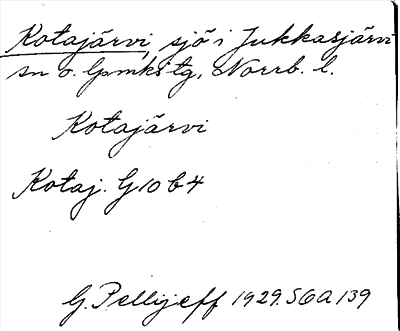 Kotajärvi, sjö i Jukkasjärvi
sn o. lpmks tg, Norrb. l.
Kotajärvi
Kotaj. G 10 b 4
G. Pellijeff 1929. SGA 139